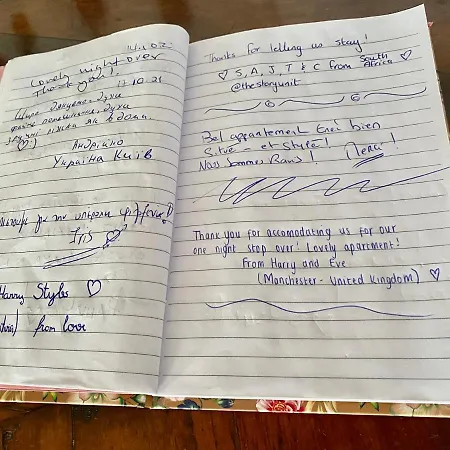 14.10.2
Lovely night over
Thank you!
17.10.21
Щиро Дякуємо, дуже
дуже
зручні ліжка як вдома.
Андрійко
Україна Київ
με την υπέροχη
Harry Styles ♡
from love
Thanks for letting us stay!
♡ S, A, J, T & C from South
Africa ♡
@thestoryunit
Bel appartement très bien
Situé et stylé!
Nous sommes Ravis! Merci!
Thank you for accomodating us for our
one night stop over! Lovely apartment!
From Harry and Eve
(Manchester - United Kingdom) ♡